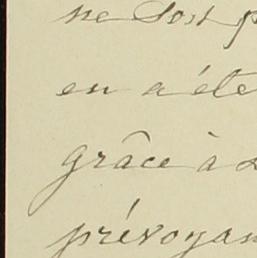 ne sont p
en a été
grâce à
prévoyan